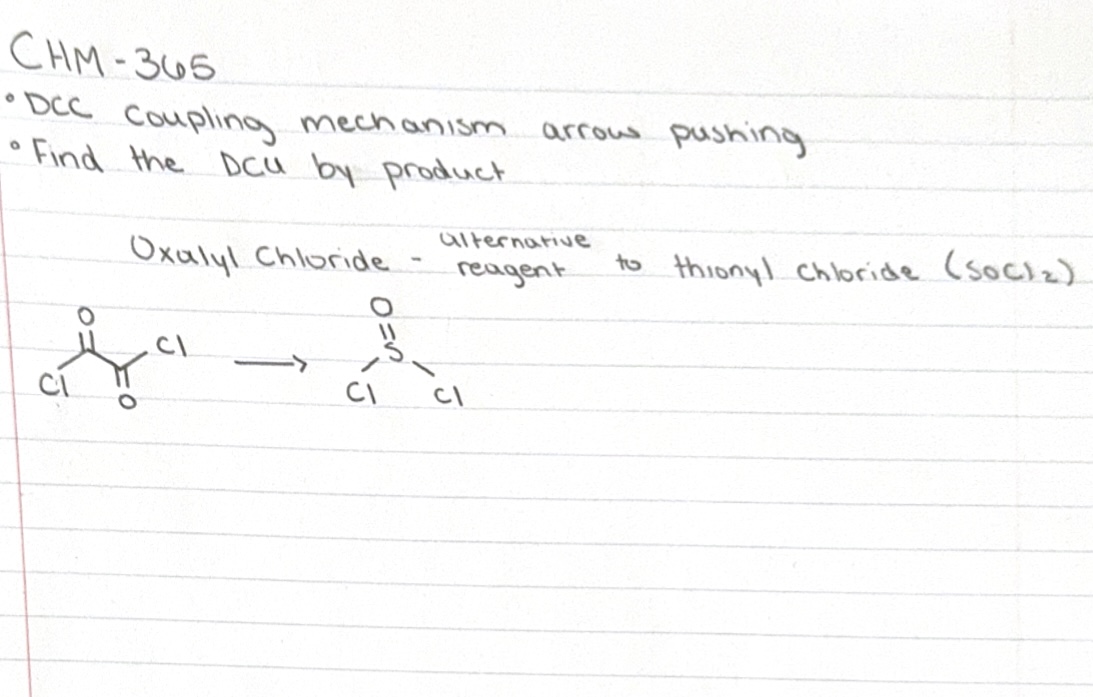 CHM-365
• DCC coupling mechanism arrow pushing
• Find the DCU by product
Oxalyl Chloride - alternative reagent to thionyl chloride (SOCl2)
O O
Cl S
Cl O Cl Cl